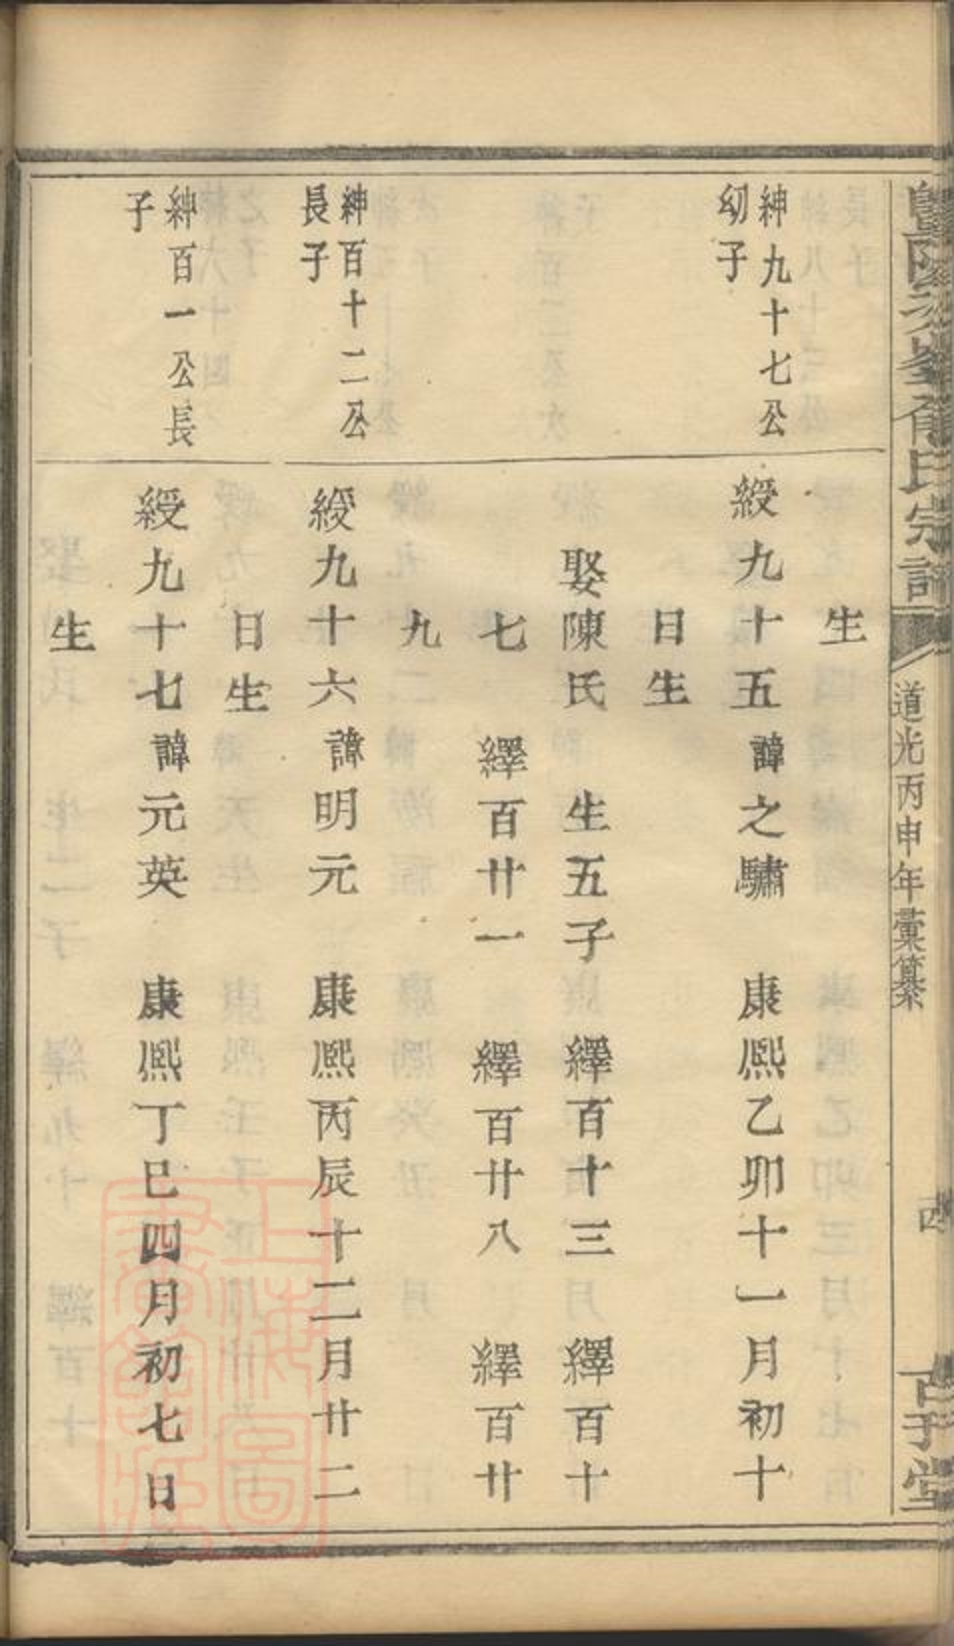 陽
氏宗譜
道光丙申年彙纂
生
紳九十七公
幼子
綬九十五諱之驌 康熙乙卯十一月初十
日生
娶陳氏 生五子 繹百十三 繹百十
七 繹百廿一 繹百廿八 繹百廿
九
紳百十二公
長子
綬九十六諱明元 康熙丙辰十二月廿二
日生
紳百一公長
子
綬九十七諱元英 康熙丁巳四月初七日
生
上海圖
書館藏